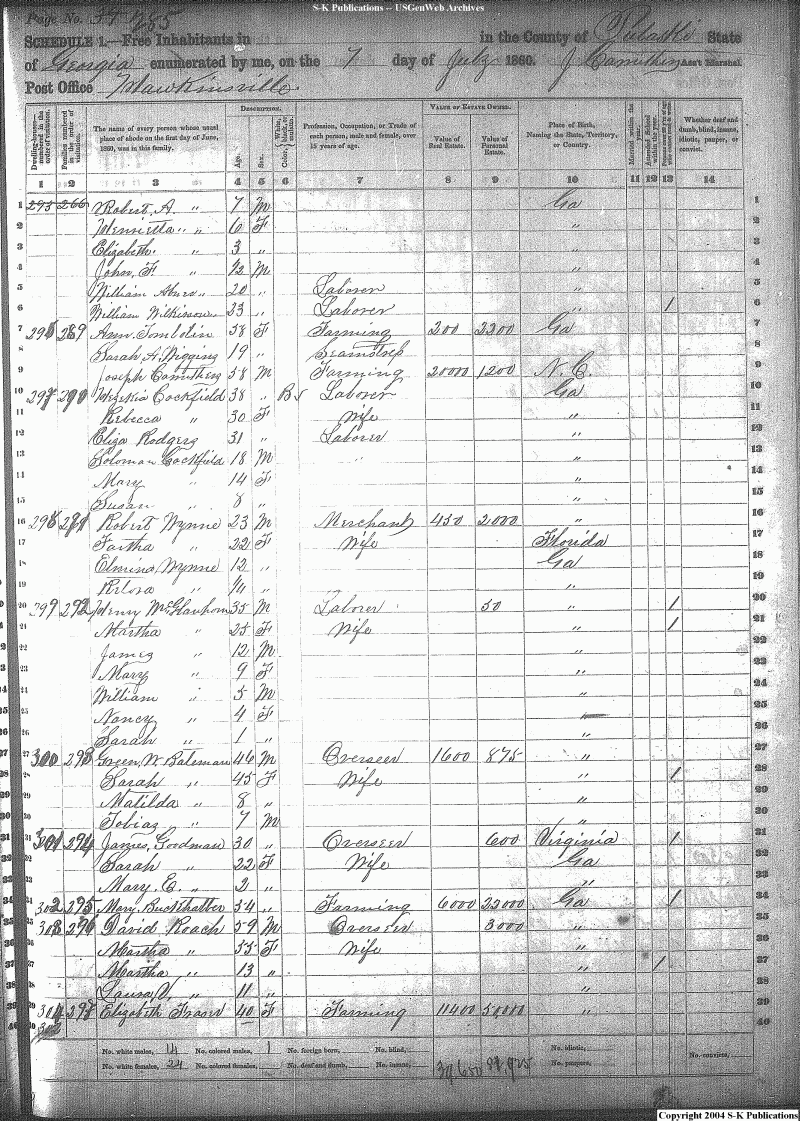 S-K Publications -- USGenWeb Archives
Page No. 37 385
SCHEDULE 1.—Free Inhabitants in in the County of Pulaski State
of Georgia enumerated by me, on the 7 day of July 1860. J Caruthers Ass't Marshal.
Post Office Hawkinsville
Dwelling-houses—numbered in the order of visitation.
Families numbered in the order of visitation.
The name of every person whose usual place of abode on the first day of June, 1860, was in this family.
DESCRIPTION.
Age.
Sex.
Color, {White, black, or mulatto.
Profession, Occupation, or Trade of each person, male and female, over 15 years of age.
VALUE OF ESTATE OWNED.
Value of Real Estate.
Value of Personal Estate.
Place of Birth, Naming the State, Territory, or Country.
Married within the year.
Attended School within the year.
Whether deaf and dumb, blind, insane, idiotic, pauper, or convict.
1 2 3 4 5 6 7 8 9 10 11 12 13 14
1 295 266 Robert, A. " 7 M Ga 1
2 Henrietta " " 6 F " 2
3 Elizabeth " 3 " " 3
4 John, F " 1/2 M " 4
5 William " 20 " Laborer 5
6 William Wilkinson 23 " Laborer " 1 6
7 296 289 Ann Tomlolin 58 F Farming 200 2300 Ga 7
8 Sarah A. Wiggins 19 " Seamstress 8
9 Joseph Caruthers 58 M Farming 20000 1200 N. C. 9
10 297 290 Cockfield 38 " B Laborer Ga 10
11 Rebecca " 30 F Wife " 11
12 Eliza Rodgers 31 " Laborer " 12
13 Soloman Cockfield 18 M " " 13
14 Mary " 14 F " 14
15 Susan " 8 " " 15
16 298 291 Robert Wynne 23 M Merchant 450 2000 " 16
17 Fartha " 22 F Wife Florida 17
18 Elmina Wynne 12 " Ga 18
19 " " " 19
20 299 292 Henry McGlauhorn 35 M Laborer 50 " 1 20
21 Martha " 25 F Wife " 1 21
22 James " 12 M " 22
23 Mary " 9 F " 23
24 William " 5 M " 24
25 Nancy " 4 F 25
26 Sarah " 1 " " 26
27 300 293 Green W. Bateman 46 M Overseer 1600 875 " 27
28 Sarah " 45 F Wife " 1 28
29 Matilda " 8 " " 29
30 Tobias " 7 M " 30
31 301 294 James, Goodman 30 " Overseer 600 Virginia 1 31
32 Sarah " 22 F Wife Ga 32
33 Mary. E. " 2 " " 33
34 302 295 Mary, Buckhalter 54 " Farming 6000 23000 Ga 1 34
35 303 296 David Roach 59 M Overseer 3000 " 35
36 Martha " 55 F Wife " 36
37 Martha " 13 " " 1 37
38 Laura V. " 11 " " 38
39 304 297 Elizabeth Fraser 40 F Farming 11400 50,000 " 39
40 303 40
No. white males, 14 No. colored males, 1 No. foreign born, No. blind, No. idiotic, No. convicts,
No. white females, 24 No. colored females, No. deaf and dumb, No. insane, 39,650 No. paupers,
Copyright 2004 S-K Publications